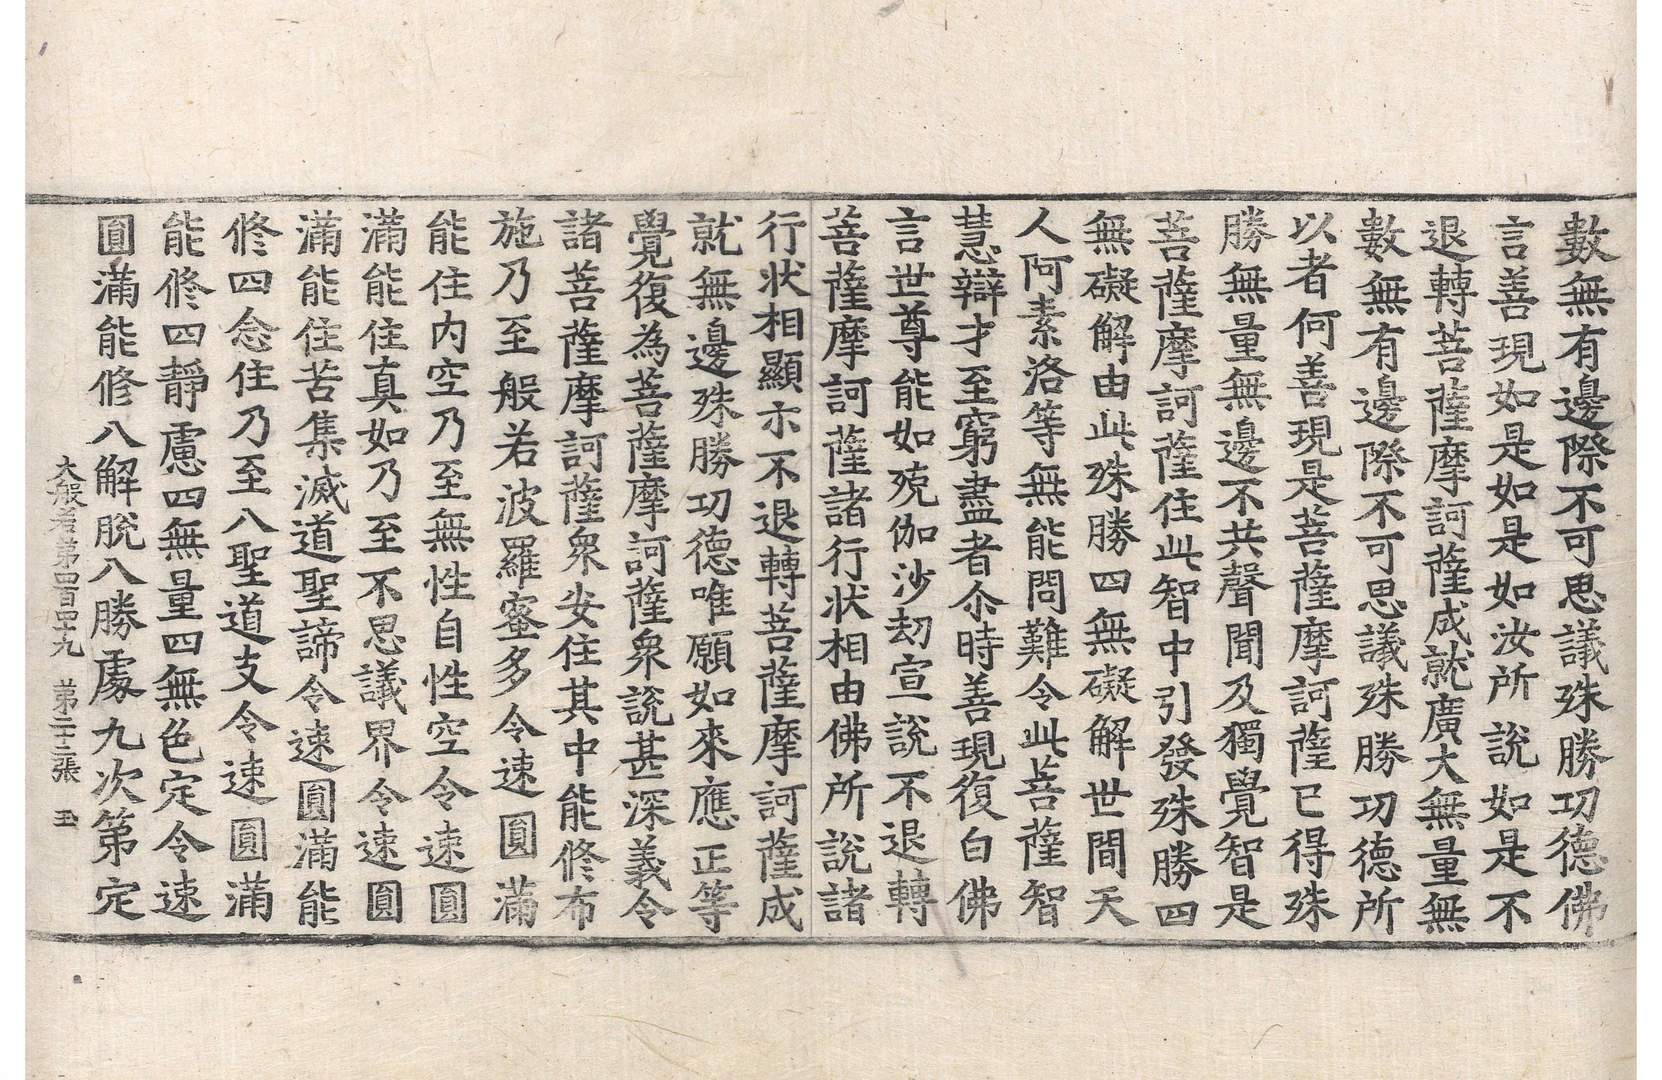 數無有邊際不可思議殊勝功德佛
言善現如是如是如汝所說如是不
退轉菩薩摩訶薩成就廣大無量無
數無有邊際不可思議殊勝功德所
以者何善現是菩薩摩訶薩已得殊
勝無量無邊不共聲聞及獨覺智是
菩薩摩訶薩住此智中引發殊勝四
無礙解由此殊勝四無礙解世間天
人阿素洛等無能問難令此菩薩智
慧辯才至窮盡者尒時善現復白佛
言世尊能如殑伽沙劫宣說不退轉
菩薩摩訶薩諸行狀相由佛所說諸
行狀相顯示不退轉菩薩摩訶薩成
就無邊殊勝功德唯願如來應正等
覺復為菩薩摩訶薩衆說甚深義令
諸菩薩摩訶薩衆安住其中能修布
施乃至般若波羅蜜多令速圓滿
能住內空乃至無性自性空令速圓
滿能住真如乃至不思議界令速圓
滿能住苦集滅道聖諦令速圓滿能
修四念住乃至八聖道支令速圓滿
能修四靜慮四無量四無色定令速
圓滿能修八解脫八勝處九次第定
大般若第四百四十九 第二十二張 玉